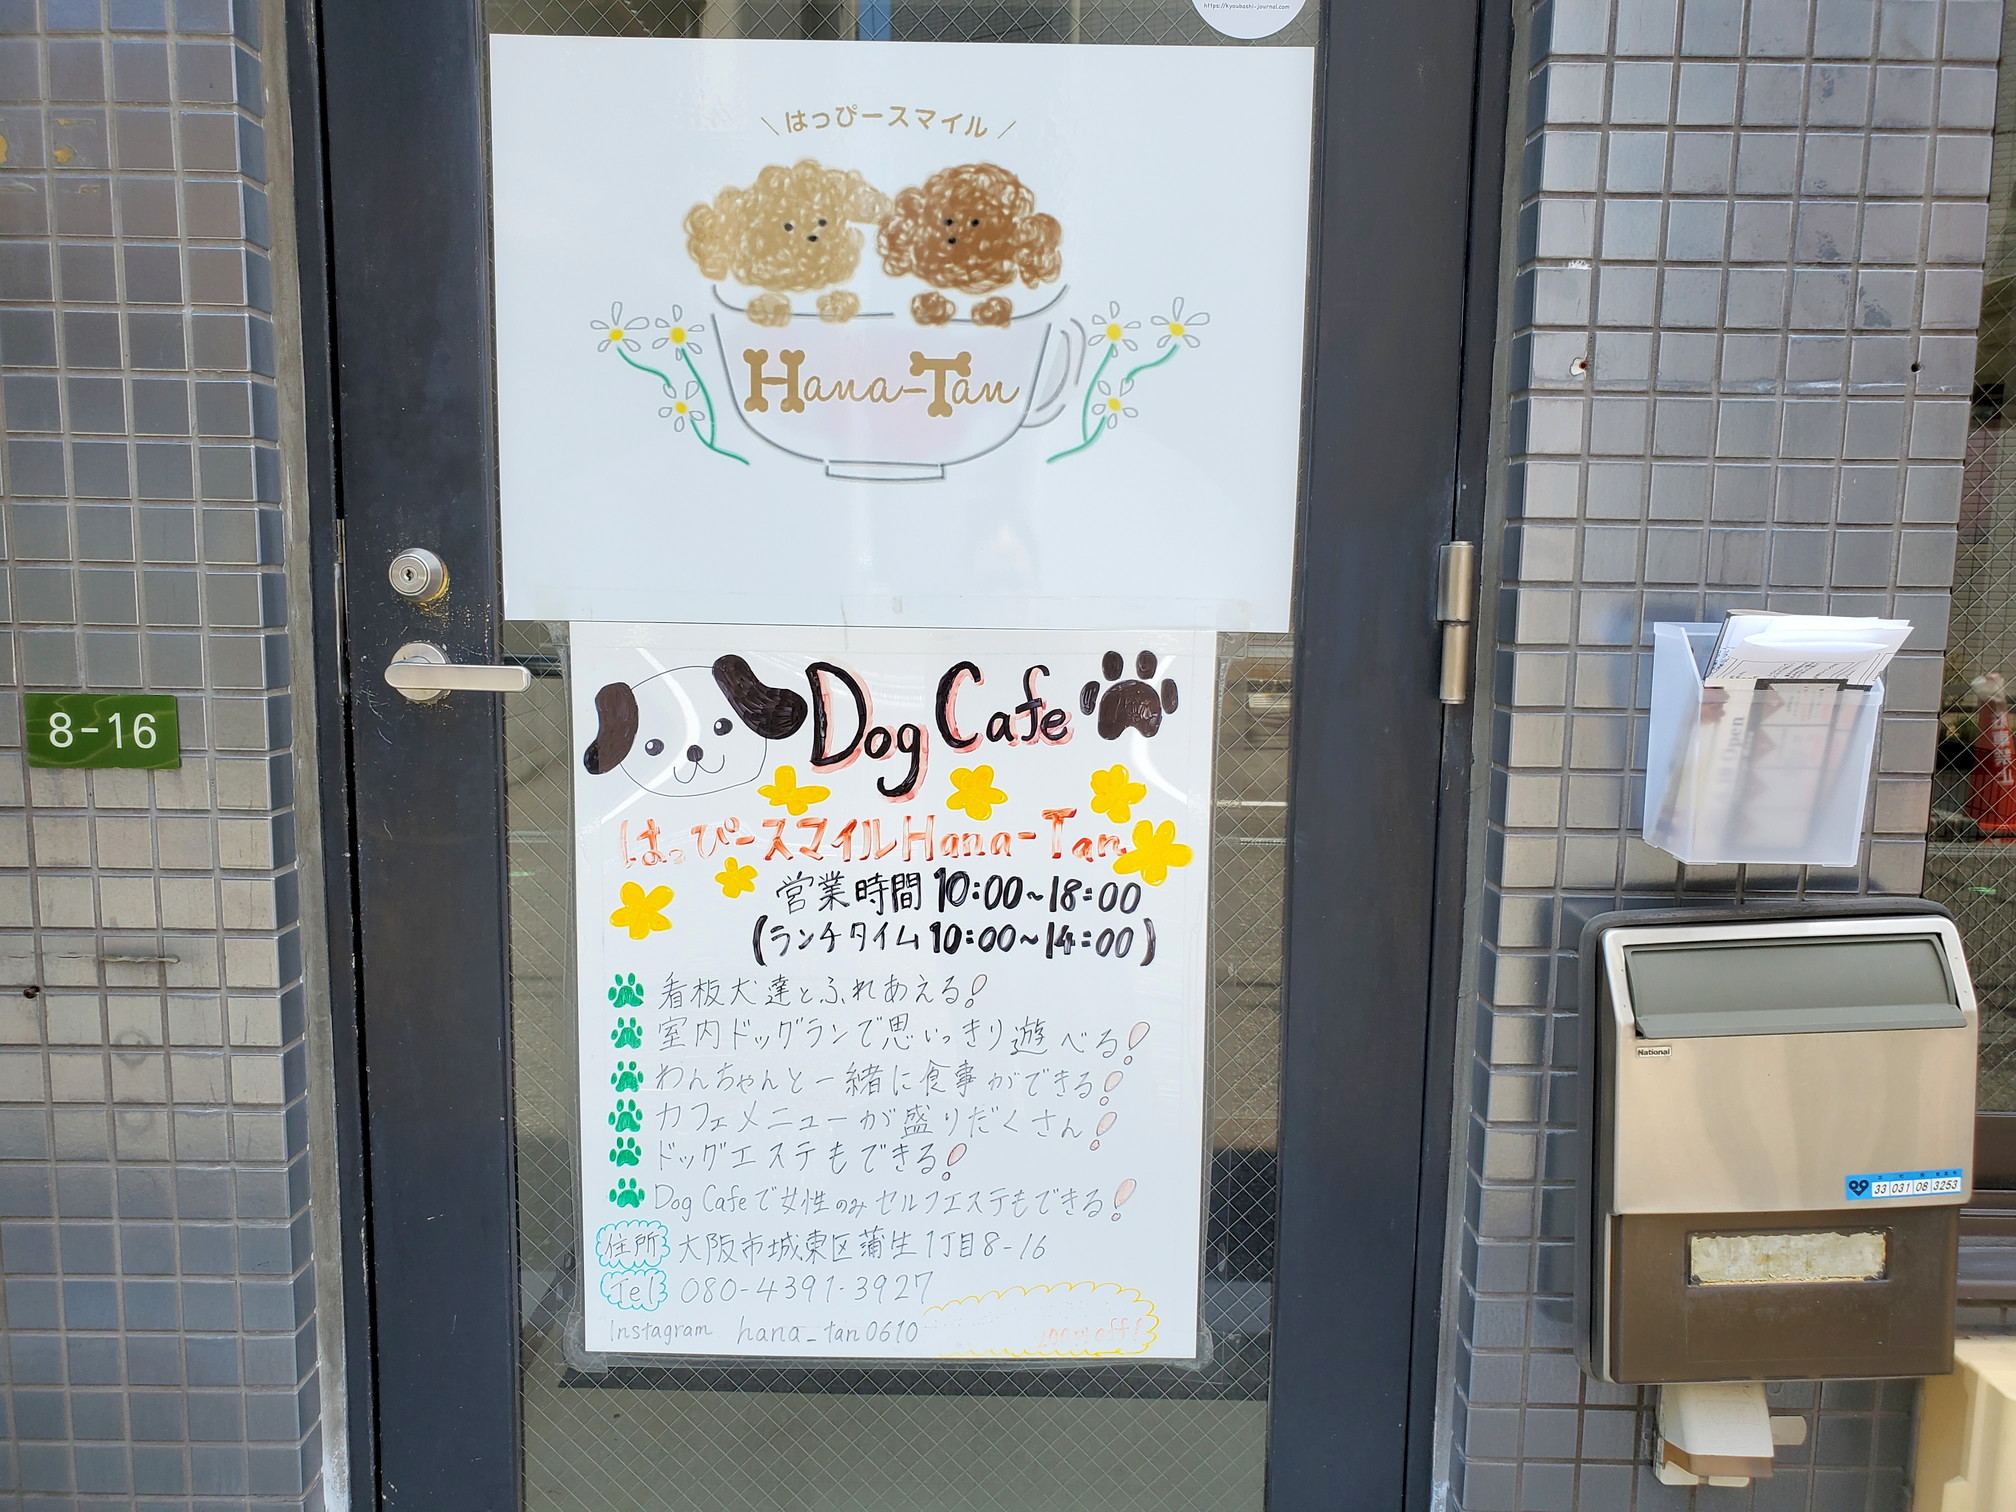 https://kyoubashi-journal.com
\ はっぴースマイル /
Hana-Tan
Dog Cafe
はっぴースマイルHana-Tan
営業時間 10:00~18:00
(ランチタイム 10:00~14:00)
看板犬達とふれあえる!
室内ドッグランで思いっきり遊べる!
わんちゃんと一緒に食事ができる!
カフェメニューが盛りだくさん!
ドッグエステもできる!
Dog Cafeで女性のみセルフエステもできる!
住所 大阪市城東区蒲生1丁目8-16
Tel 080-4391-3927
Instagram hana_tan0610
off!
8-16
Open
National
33 031 08 3253